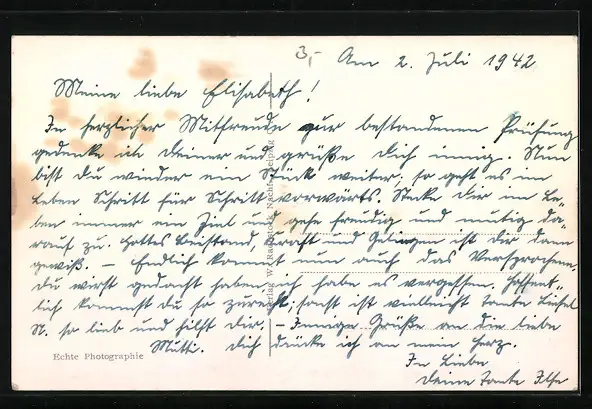 3,- Am 2. Juli 1942
Meine liebe Elisabeth!
In herzlicher Mitfreude zur bestandenen Prüfung
gedenke ich Deiner und grüße Dich innig. Nun
bist Du wieder ein Stück weiter; so geht es im
Leben Schritt für Schritt vorwärts. Stecke Dir im Le-
ben immer ein Ziel und gehe freudig und mutig da-
rauf zu. Gottes Beistand, Kraft und Gelingen ist Dir dann
gewiß. – Endlich kommt nun auch das Versprochene,
Du wirst gedacht haben, ich habe es vergessen. Hoffent-
lich kommst Du so zurecht, sonst ist vielleicht Tante Liesel
N. so lieb und hilft Dir. – Innige Grüße an die liebe
Mutti. Dich drücke ich an mein Herz.
In Liebe
Deine Tante Ilse
Echte Photographie
Verlag W. Nachf. Leipzig